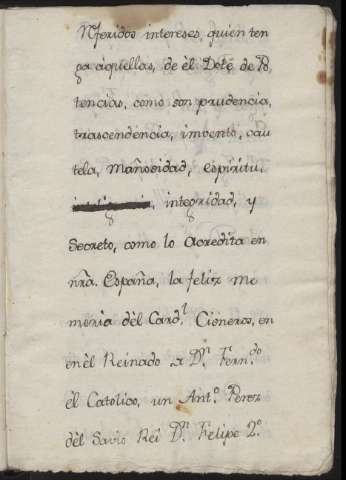 Nferidos intereses, quien ten
ga aquellas, de èl Dote de Po
tencias, como son prudencia,
trascendencia, imvento, cau
tela, mañosidad, espiritu,
integridad, y
Secreto, como lo Acredita en
ñrà. España, la feliz me
moria dèl Card.l Cisneros, en
en èl Reinado a D.n Fern.do
èl Catolico, un Ant.o Perez
dèl Savio Rei D.n Felipe 2.o